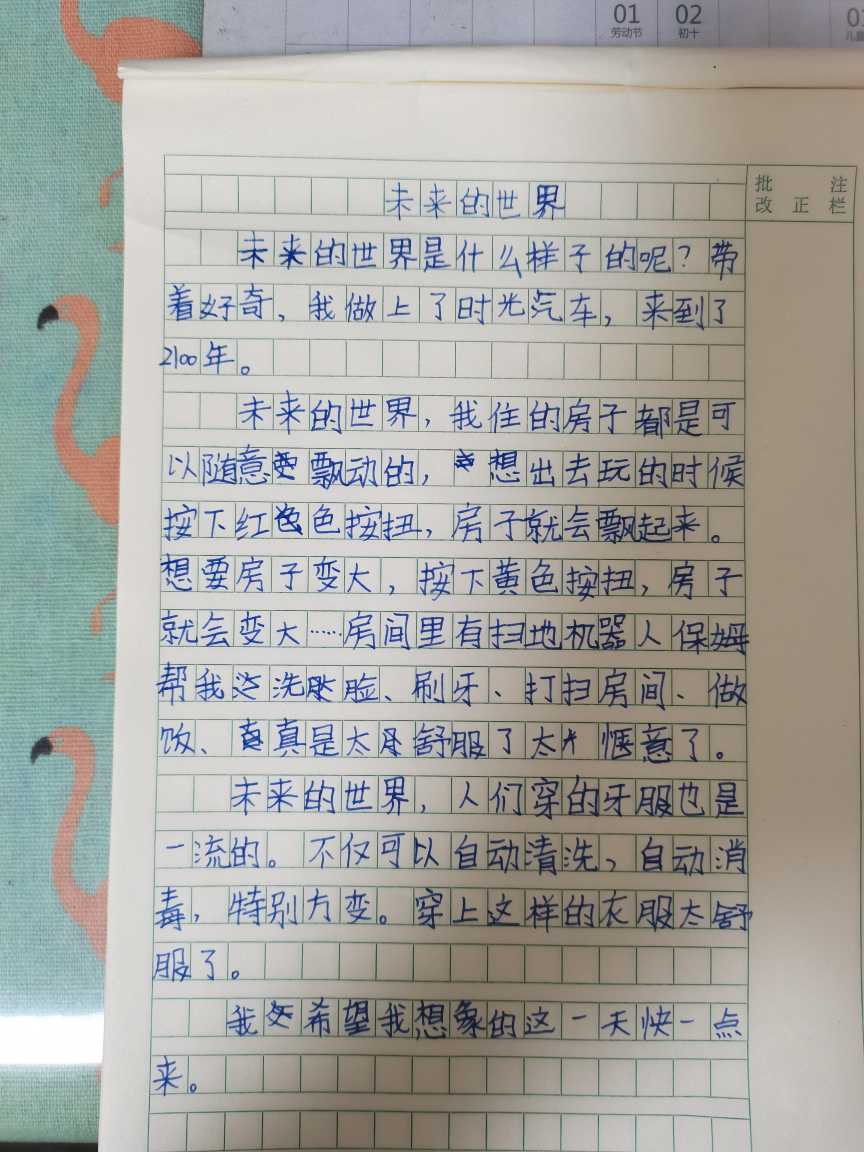 01 02
劳动节 初十
批注
改正栏
未来的世界
未来的世界是什么样子的呢？带
着好奇，我做上了时光汽车，来到了
2100年。
未来的世界，我住的房子都是可
以随意飘动的，想出去玩的时候
按下红色按扭，房子就会飘起来。
想要房子变大，按下黄色按扭，房子
就会变大……房间里有扫地机器人保姆
帮我洗脸、刷牙、打扫房间、做
饭、真是太舒服了太惬意了。
未来的世界，人们穿的牙服也是
一流的。不仅可以自动清洗，自动消
毒，特别方变。穿上这样的衣服太舒
服了。
我希望我想象的这一天快一点
来。